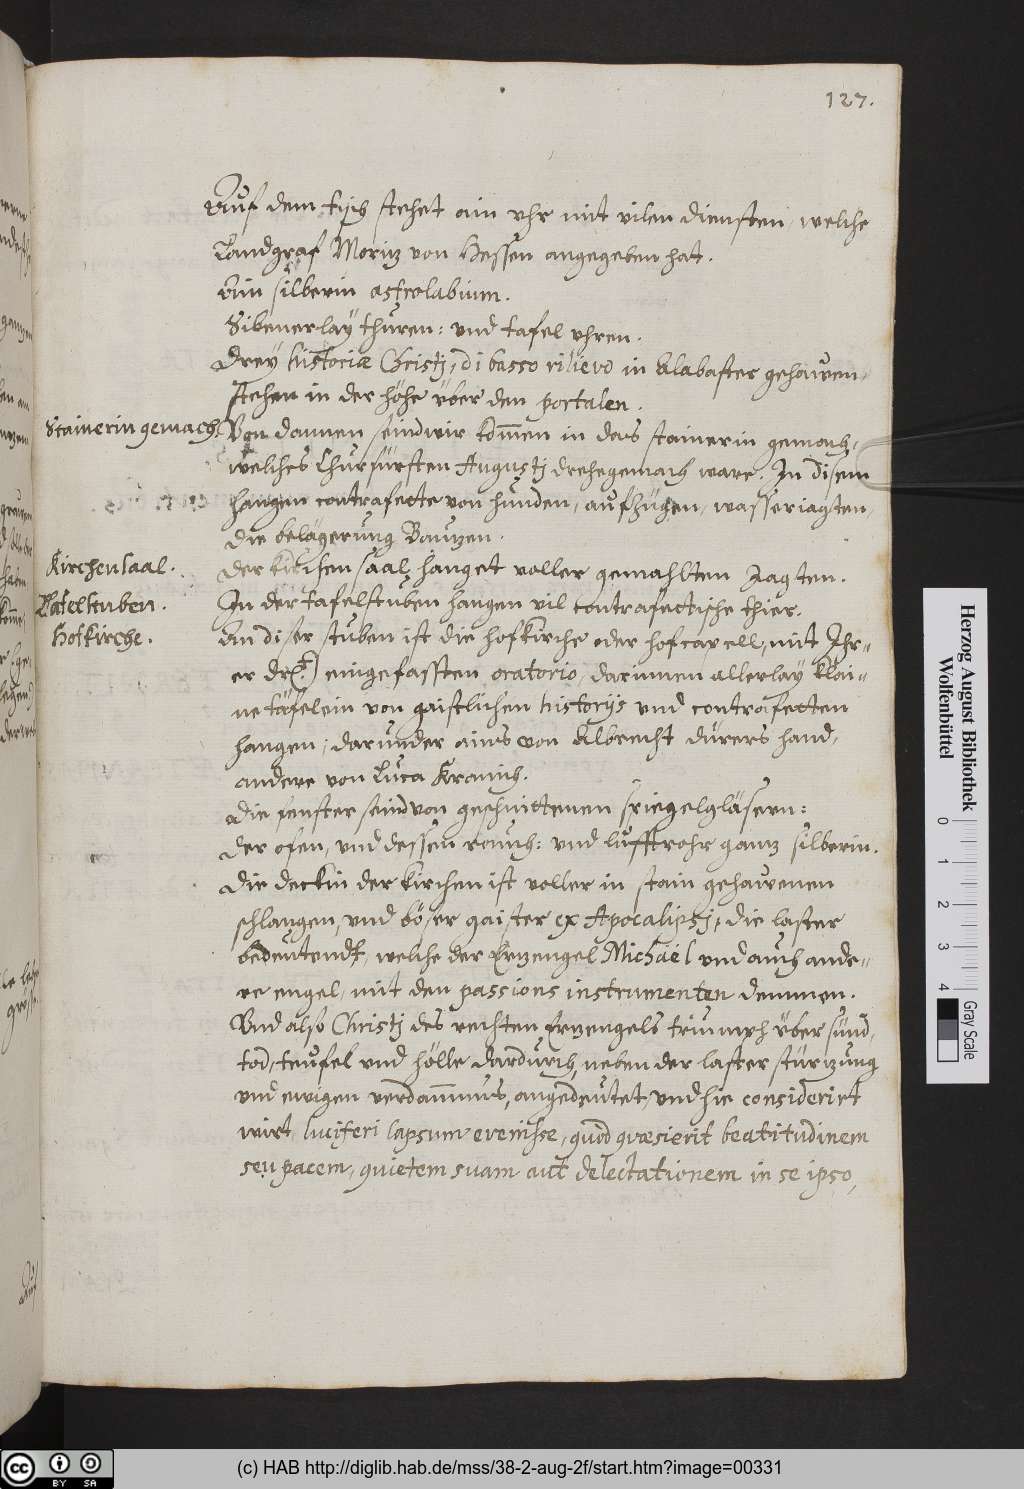 127.
Auf dem tisch stehet ain vhr mit vilen diensten, welche
Landgraf Moritz von Hessen angegeben hat.
Ain silberin astrolabium.
Sibenerlaÿ thuren: vnd tafel vhren.
Dreÿ historiæ Christj, di basso rilievo in Alabaster gehawen,
stehen in der höhe vber den portalen.
Stainerin gemach.
Von dannen seind wir kommen in das stainerin gemach,
welches Churfürsten Augustj drehegemach ware. In disem
hangen contrafette von hunden, aufzügen, wasseriagten,
die belägerung Bautzen.
Kirchensaal.
Der kirchen saal hanget voller gemahlten Jagten.
Tafelstuben.
In der tafelstuben hangen vil contrafettische thier.
Hofkirche.
An diser stuben ist die hofkirche oder hofcapell, mit Ihr-
er eingefassten oratorio, darinnen allerlaÿ klai-
ne täfelein von gaistlichen historijs vnd contrafetten
hangen, darunder ains von Albrecht dürers hand,
andere von Luca Kranich.
Die fenster seind von geschnittenen spiegelgläsern:
Der ofen, vnd dessen rauch: vnd lufftrohr gantz silberin.
Die deckin der kirchen ist voller in stain gehawenen
schlangen, vnd böser gaister ex Apocalipsj, die laster
bedeutendt, welche der Ertzengel Michaël vnd auch ande-
re engel, mit den passions instrumenten demmen.
Vnd also Christj des rechten Ertzengels triumph vber sünd,
tod, teufel vnd hölle dardurch, neben der laster stürtzung
vnd ewigen verdamnus, angedeutet, vnd hie considerirt
wirt, luciferi lapsum evenisse, quod quæsierit beatitudinem
seu pacem, quietem suam aut delectationem in se ipso,
Auf
Herzog August Bibliothek
Wolfenbüttel
0 1 2 3 4
Gray Scale
cc BY SA
(c) HAB http://diglib.hab.de/mss/38-2-aug-2f/start.htm?image=00331